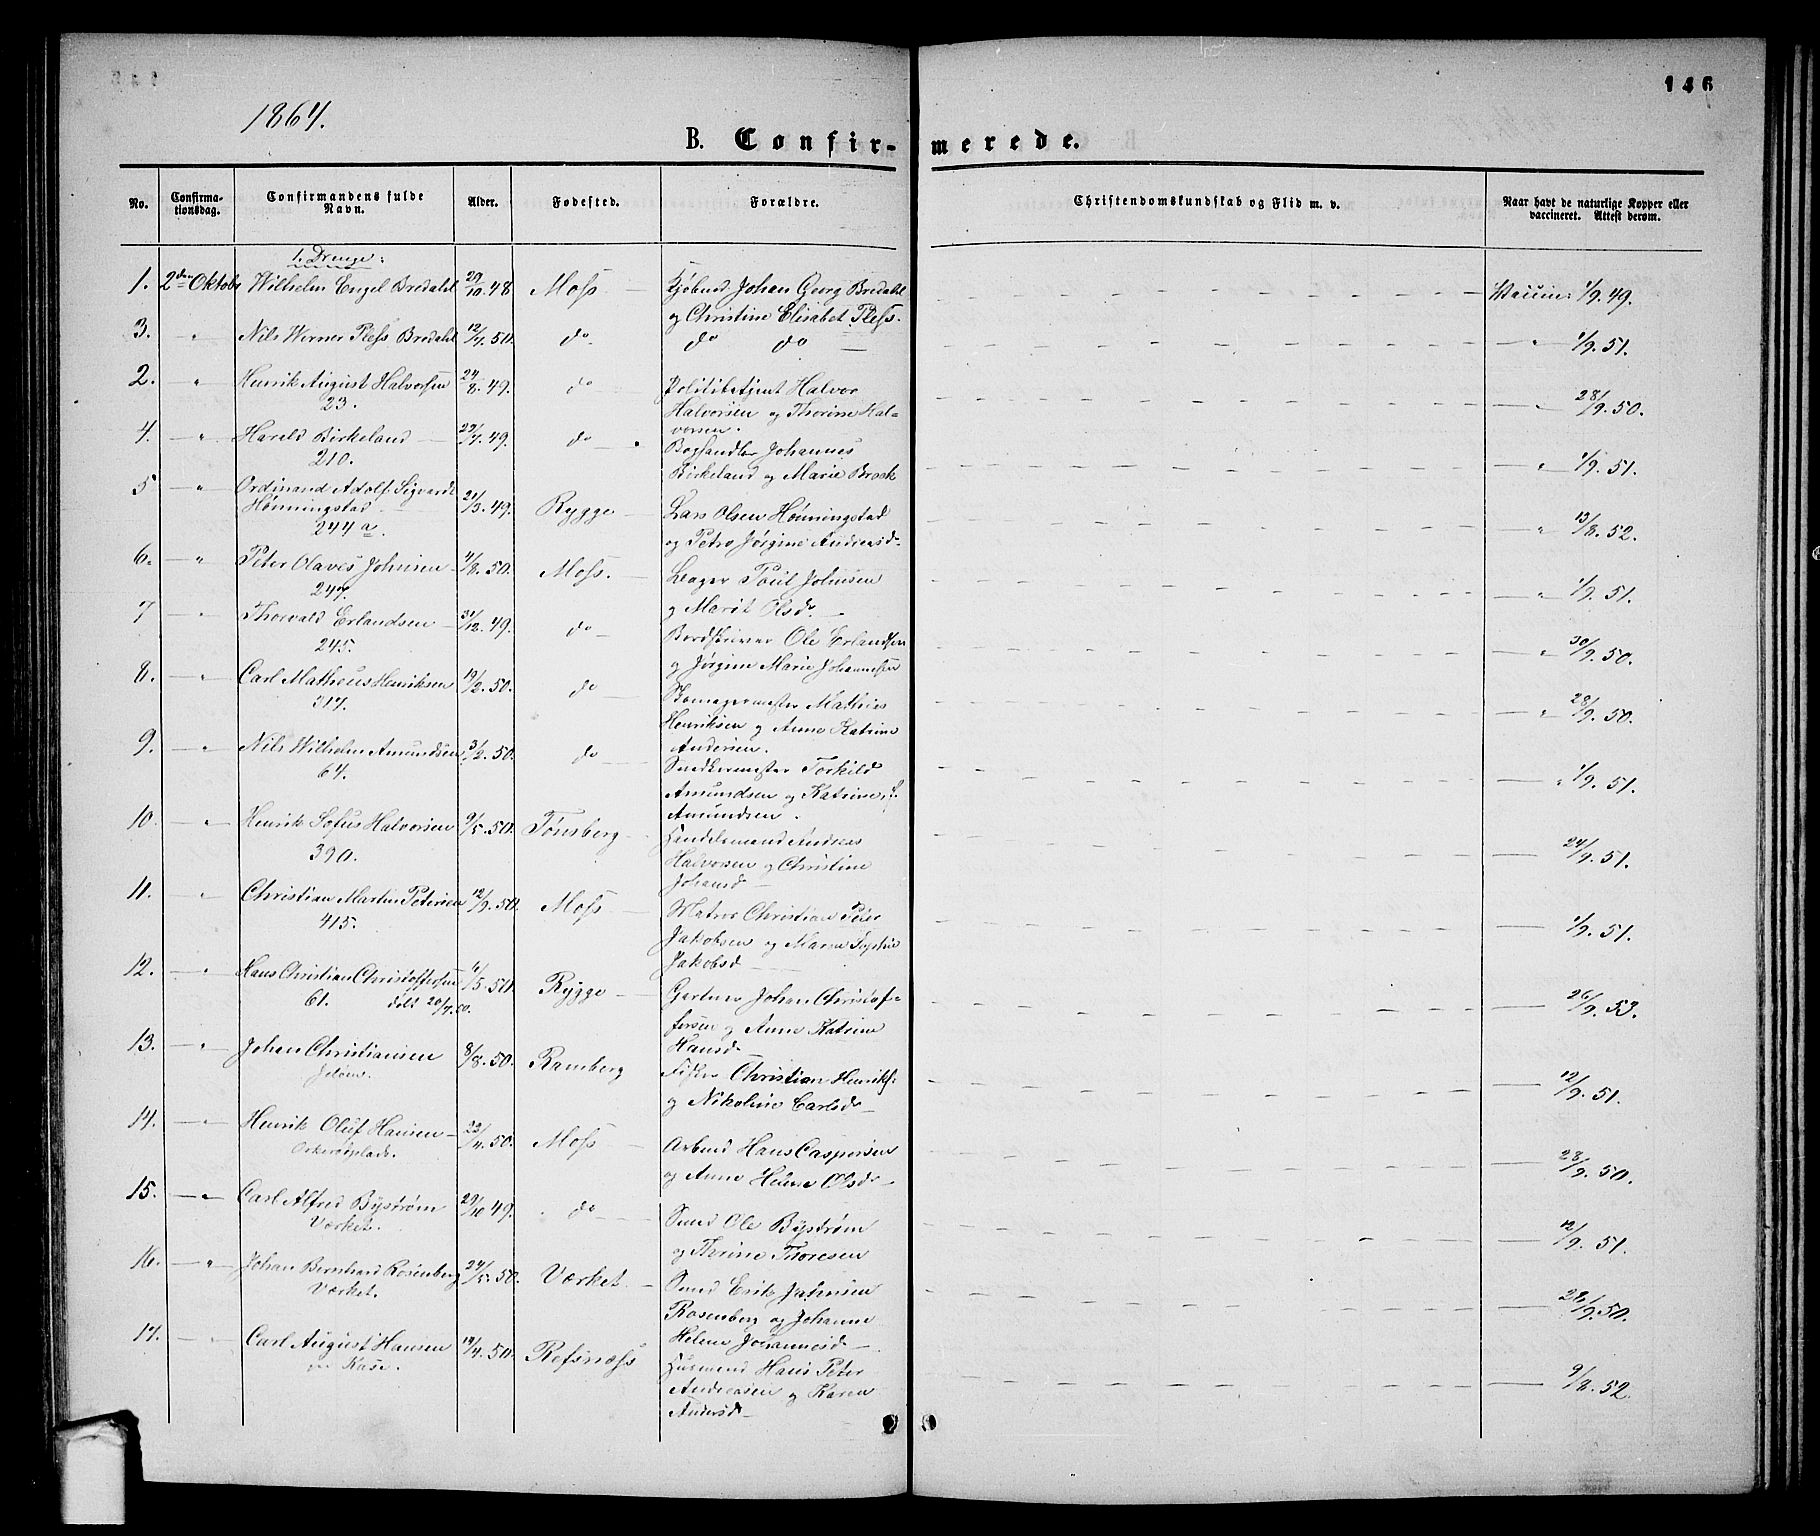 146
1864.
B. Confirmerede.
No. Confirmationsdag. Confirmandens fulde Navn. Alder. Fødested. Forældre. Christendomskundskab og Flid m. v. Naar havt de naturlige Kopper eller vaccineret. Attest derom.
1. Drenge:
1. 2den Oktob Wilhelm Engel Bredahl 20/10.48 Moss Kjøbmd Johan Georg Bredahl Vaccin: 1/9.49.
og Christine Elisabet Pless.
3. " Nils Werner Pless Bredahl 12/7.50. do. do do " 1/9.51.
2. " Henrik August Halvorsen 24/8.49. do Politibetjent Halvor " 28/9.50.
23. Halvorsen og Thorine Hal-
vorsen.
4. " Harald Birkeland 29/7.49. do Boghandler Johannes " 1/9.51.
210. Birkeland og Marie Brock
5 " Ordinand Adolf Sigvardt
Hønningstad 21/3.49. Rygge Lars Olsen Hønningstad " 13/8.52.
244 a. og Petro Jørgine Andreasd
6. " Peter Olaves Johnsen 4/8.50. Moss. Leager Poul Johnsen " 1/9.51.
247. og Marit Olsd
7 " Thorvald Erlandsen 31/12.49. do Bordskriver Ole Erlandsen " 30/9.50.
245. og Jørgine Marie Johannesen
8. " Carl Matheus Henriksen 19/2.50. do Skomagermester Mathies " 28/9.50.
317. Henriksen og Anne Katrine
Andersen.
9. " Nils Wilhelm Amundsen 3/2.50. do Snedkermester Torkild " 1/9.51.
64. Amundsen og Katrine
Amundsen.
10. " Henrik Sofus Halvorsen 9/5.50. Tønsberg Handelsmand Andreas 24/9.51.
390. Halvorsen og Christine
Johansd
11. " Christian Martin Petersen 12/9.50. Moss Matros Christian Peter 1/9.51.
415. Jakobsen og Maren Sophie
Jakobsd
12. " Hans Christian Christoffersen /5.50. Rygge Gartner Johan Christof- 26/9.53.
61. døbt 20/7.50. fersen og Anne Katrine
Hansd
13. " Johan Christiansen 8/8.50. Ramberg Fisker Christian Henriks: 12/9.51.
Jeløen. og Nikoline Carlsd
14. " Henrik Oluf Hansen 23/4.50. Moss Arbmd Hans Caspersen 28/9.50.
og Anne Olsd
15. " Carl Alfred Bystrøm 29/10 49. do Smed Ole Bystrøm 12/9.51.
Værket. og Thrine Thoresen
16. " Johan Bernhard Rosenberg 24/5.50. Værket Smed Erik Johnsen 28/9.50.
Værket. Rosenberg og Johanne
Helene Johannesd
17. " Carl August Hansen 19/4.50. Refsnæss Husmand Hans Peter 9/8.52.
Kase. Andreasen og Karen
Andersd